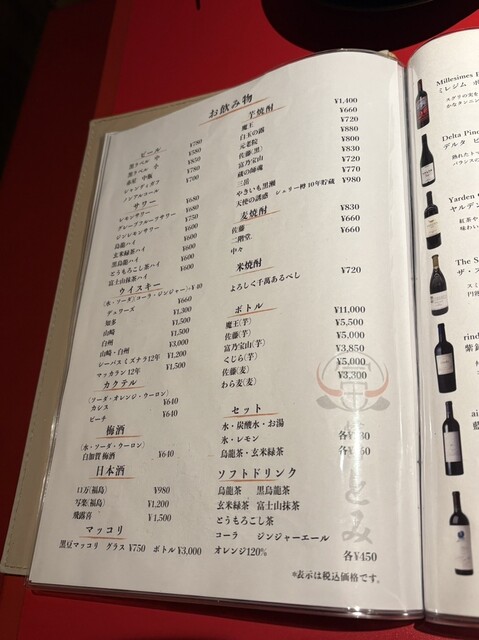 お飲み物
ビール
黒ラベル 中 ¥780
黒ラベル 小 ¥580
赤星 中瓶 ¥850
シャンディガフ ¥780
ノンアルコール ¥700
サワー
レモンサワー ¥680
グレープフルーツサワー ¥680
ジンレモンサワー ¥750
烏龍ハイ ¥600
玄米緑茶ハイ ¥600
黒烏龍ハイ ¥600
とうもろこし茶ハイ ¥600
富士山抹茶ハイ ¥600
ウイスキー
(水・ソーダ)(コーラ・ジンジャー)+¥40
デュワーズ ¥660
知多 ¥1,300
山崎 ¥1,500
白州 ¥1,500
山崎・白州 ¥3,000
シーバスミズナラ12年 ¥1,200
マッカラン 12年 ¥1,500
カクテル
(ソーダ・オレンジ・ウーロン)
カシス ¥640
ピーチ ¥640
梅酒
(水・ソーダ・ウーロン)
自加賀梅酒 ¥640
日本酒
口万(福島) ¥980
写楽(福島) ¥1,200
飛露喜 ¥1,500
マッコリ
黒豆マッコリ グラス ¥750 ボトル ¥3,000
芋焼酎
魔王 ¥1,400
白玉の露 ¥660
元老院 ¥720
佐藤(黒) ¥880
富乃宝山 ¥800
蔵の師魂 ¥720
三岳 ¥830
やきいも黒瀬 ¥770
天使の誘惑 シェリー樽10年貯蔵 ¥980
麦焼酎
佐藤 ¥830
二階堂 ¥660
中々 ¥660
米焼酎
よろしく千萬あるべし ¥720
ボトル
魔王(芋) ¥11,000
佐藤(芋) ¥5,500
富乃宝山(芋) ¥5,000
くじら(芋) ¥3,850
佐藤(麦) ¥5,000
わら麦(麦) ¥3,300
セット
水・炭酸水・お湯
氷・レモン
烏龍茶・玄米緑茶
ソフトドリンク
烏龍茶 黒烏龍茶
玄米緑茶 富士山抹茶
とうもろこし茶
コーラ ジンジャーエール
オレンジ120% 各¥450
*表示は税込価格です。
とみ
Millesimes
ミレジム
Delta
デルタ
Yarden
ヤルデン
The
ザ・ス